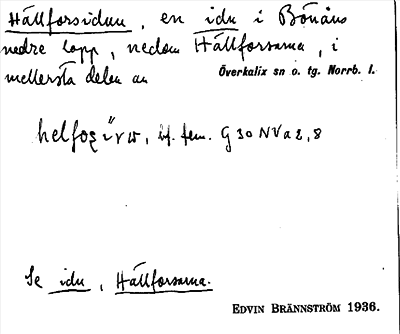 Hällforsidun, en idu i Bönåns
nedre lopp, nedom Hällforsarna, i
mellersta delen av Överkalix sn o. tg. Norrb. l.
bf. fem. G 30 NV a 2, 8
Se idu, Hällforsarna.
EDVIN BRÄNNSTRÖM 1936.